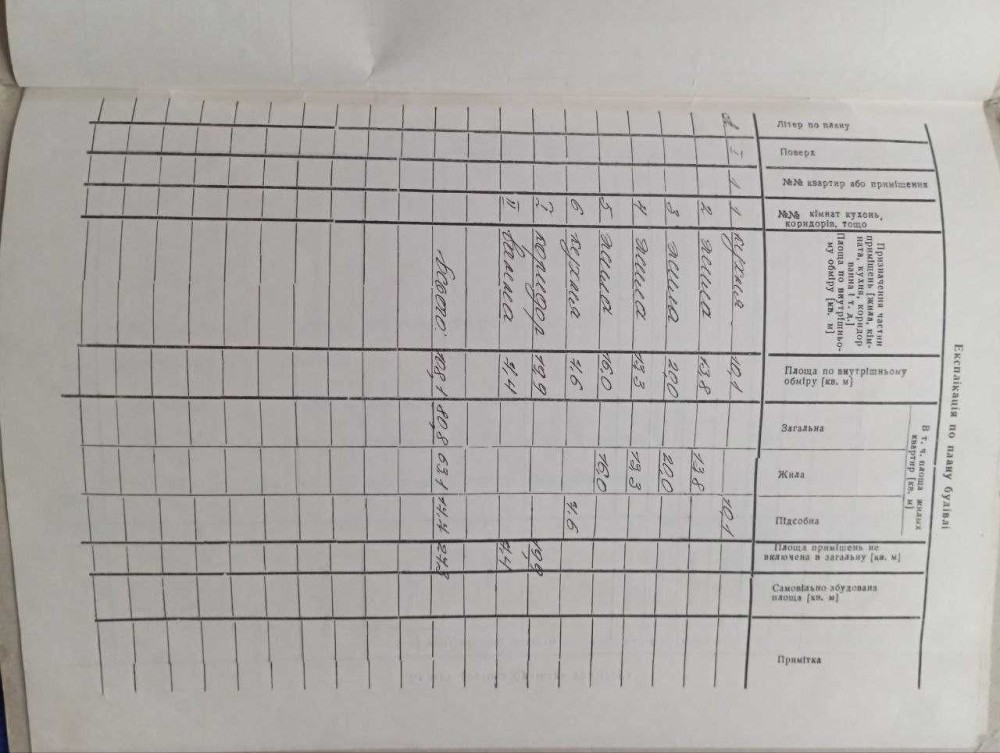 Експлікація по плану будівлі
Літер по плану
Поверх
№№ квартир або приміщення
№№ кімнат кухонь,
коридорів, тощо
Призначення частин
приміщень [жила, кім-
ната, кухня, коридор
ванна і т. д.]
Площа по внутрішньо-
му обміру [кв. м]
Площа по внутрішньому
обміру [кв. м]
В т. ч. площа жилых
квартир [кв. м]
Загальна
Жила
Підсобна
Площа приміщень не
включена в загальну [кв. м]
Самовільно збудована
площа [кв. м]
Примітка
А I 1 1 кухня 10,1 10,1
2 жила 13,8 13,8
3 жила 20,0 20,0
4 жила 13,3 13,3
5 жила 16,0 16,0
6 кухня 7.6 7.6
7 коридор 19,9 19,9
II ванна 7.4 7.4
108,1 80,8 63.1 17.7 27.3